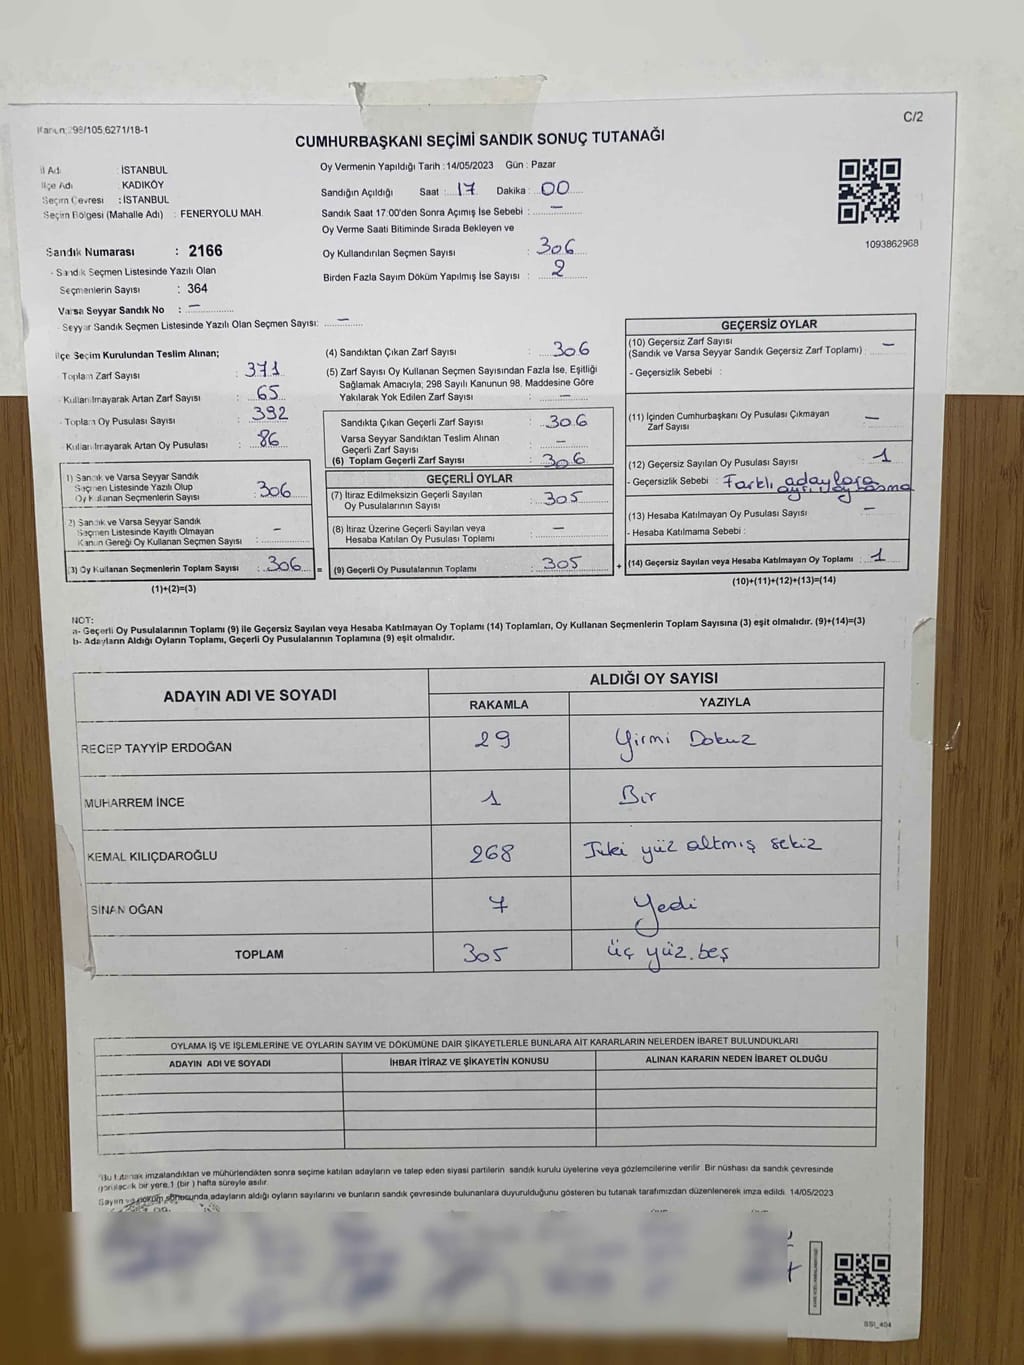 Kanun:298/105,6271/18-1
C/2
CUMHURBAŞKANI SEÇİMİ SANDIK SONUÇ TUTANAĞI
İl Adı : İSTANBUL
İlçe Adı : KADIKÖY
Seçim Çevresi : İSTANBUL
Seçim Bölgesi (Mahalle Adı) : FENERYOLU MAH.
Oy Vermenin Yapıldığı Tarih : 14/05/2023 Gün : Pazar
Sandığın Açıldığı Saat : 17 Dakika : 00
Sandık Saat 17:00'den Sonra Açımış İse Sebebi : —
Oy Verme Saati Bitiminde Sırada Bekleyen ve
Oy Kullandırılan Seçmen Sayısı : 306
Birden Fazla Sayım Döküm Yapılmış İse Sayısı : 2
1093862968
Sandık Numarası : 2166
- Sandık Seçmen Listesinde Yazılı Olan
Seçmenlerin Sayısı : 364
Varsa Seyyar Sandık No : —
- Seyyar Sandık Seçmen Listesinde Yazılı Olan Seçmen Sayısı: —
İlçe Seçim Kurulundan Teslim Alınan;
Toplam Zarf Sayısı : 371
- Kullanılmayarak Artan Zarf Sayısı : 65
- Toplam Oy Pusulası Sayısı : 392
- Kullanılmayarak Artan Oy Pusulası : 86
1) Sandık ve Varsa Seyyar Sandık
Seçmen Listesinde Yazılı Olup
Oy Kullanan Seçmenlerin Sayısı : 306
2) Sandık ve Varsa Seyyar Sandık
Seçmen Listesinde Kayıtlı Olmayan
Kanun Gereği Oy Kullanan Seçmen Sayısı : —
3) Oy Kullanan Seçmenlerin Toplam Sayısı : 306 =
(1)+(2)=(3)
(4) Sandıktan Çıkan Zarf Sayısı : 306
(5) Zarf Sayısı Oy Kullanan Seçmen Sayısından Fazla İse, Eşitliği
Sağlamak Amacıyla; 298 Sayılı Kanunun 98. Maddesine Göre
Yakılarak Yok Edilen Zarf Sayısı : —
Sandıkta Çıkan Geçerli Zarf Sayısı : 306
Varsa Seyyar Sandıktan Teslim Alınan
Geçerli Zarf Sayısı : —
(6) Toplam Geçerli Zarf Sayısı : 306
GEÇERLİ OYLAR
(7) İtiraz Edilmeksizin Geçerli Sayılan
Oy Pusulalarının Sayısı : 305
(8) İtiraz Üzerine Geçerli Sayılan veya
Hesaba Katılan Oy Pusulası Toplamı : —
(9) Geçerli Oy Pusulalarının Toplamı : 305 +
GEÇERSİZ OYLAR
(10) Geçersiz Zarf Sayısı
(Sandık ve Varsa Seyyar Sandık Geçersiz Zarf Toplamı) : —
- Geçersizlik Sebebi :
(11) İçinden Cumhurbaşkanı Oy Pusulası Çıkmayan
Zarf Sayısı : —
(12) Geçersiz Sayılan Oy Pusulası Sayısı : 1
- Geçersizlik Sebebi : Farklı adaylara
ayrı oy basma
(13) Hesaba Katılmayan Oy Pusulası Sayısı : —
- Hesaba Katılmama Sebebi :
(14) Geçersiz Sayılan veya Hesaba Katılmayan Oy Toplamı : 1
(10)+(11)+(12)+(13)=(14)
NOT:
a- Geçerli Oy Pusulalarının Toplamı (9) ile Geçersiz Sayılan veya Hesaba Katılmayan Oy Toplamı (14) Toplamları, Oy Kullanan Seçmenlerin Toplam Sayısına (3) eşit olmalıdır. (9)+(14)=(3)
b- Adayların Aldığı Oyların Toplamı, Geçerli Oy Pusulalarının Toplamına (9) eşit olmalıdır.
ADAYIN ADI VE SOYADI
ALDIĞI OY SAYISI
RAKAMLA YAZIYLA
RECEP TAYYİP ERDOĞAN 29 Yirmi Dokuz
MUHARREM İNCE 1 Bir
KEMAL KILIÇDAROĞLU 268 İki yüz altmış sekiz
SİNAN OĞAN 7 Yedi
TOPLAM 305 üç yüz.beş
OYLAMA İŞ VE İŞLEMLERİNE VE OYLARIN SAYIM VE DÖKÜMÜNE DAİR ŞİKAYETLERLE BUNLARA AİT KARARLARIN NELERDEN İBARET BULUNDUKLARI
ADAYIN ADI VE SOYADI İHBAR İTİRAZ VE ŞİKAYETİN KONUSU ALINAN KARARIN NEDEN İBARET OLDUĞU
"Bu tutanak imzalandıktan ve mühürlendikten sonra seçime katılan adayların ve talep eden siyasi partilerin sandık kurulu üyelerine veya gözlemcilerine verilir. Bir nüshası da sandık çevresinde
görülecek bir yere 1 (bir) hafta süreyle asılır.
Sayım ve döküm sonucunda adayların aldığı oyların sayılarını ve bunların sandık çevresinde bulunanlara duyurulduğunu gösteren bu tutanak tarafımızdan düzenlenerek imza edildi. 14/05/2023
SSI_404